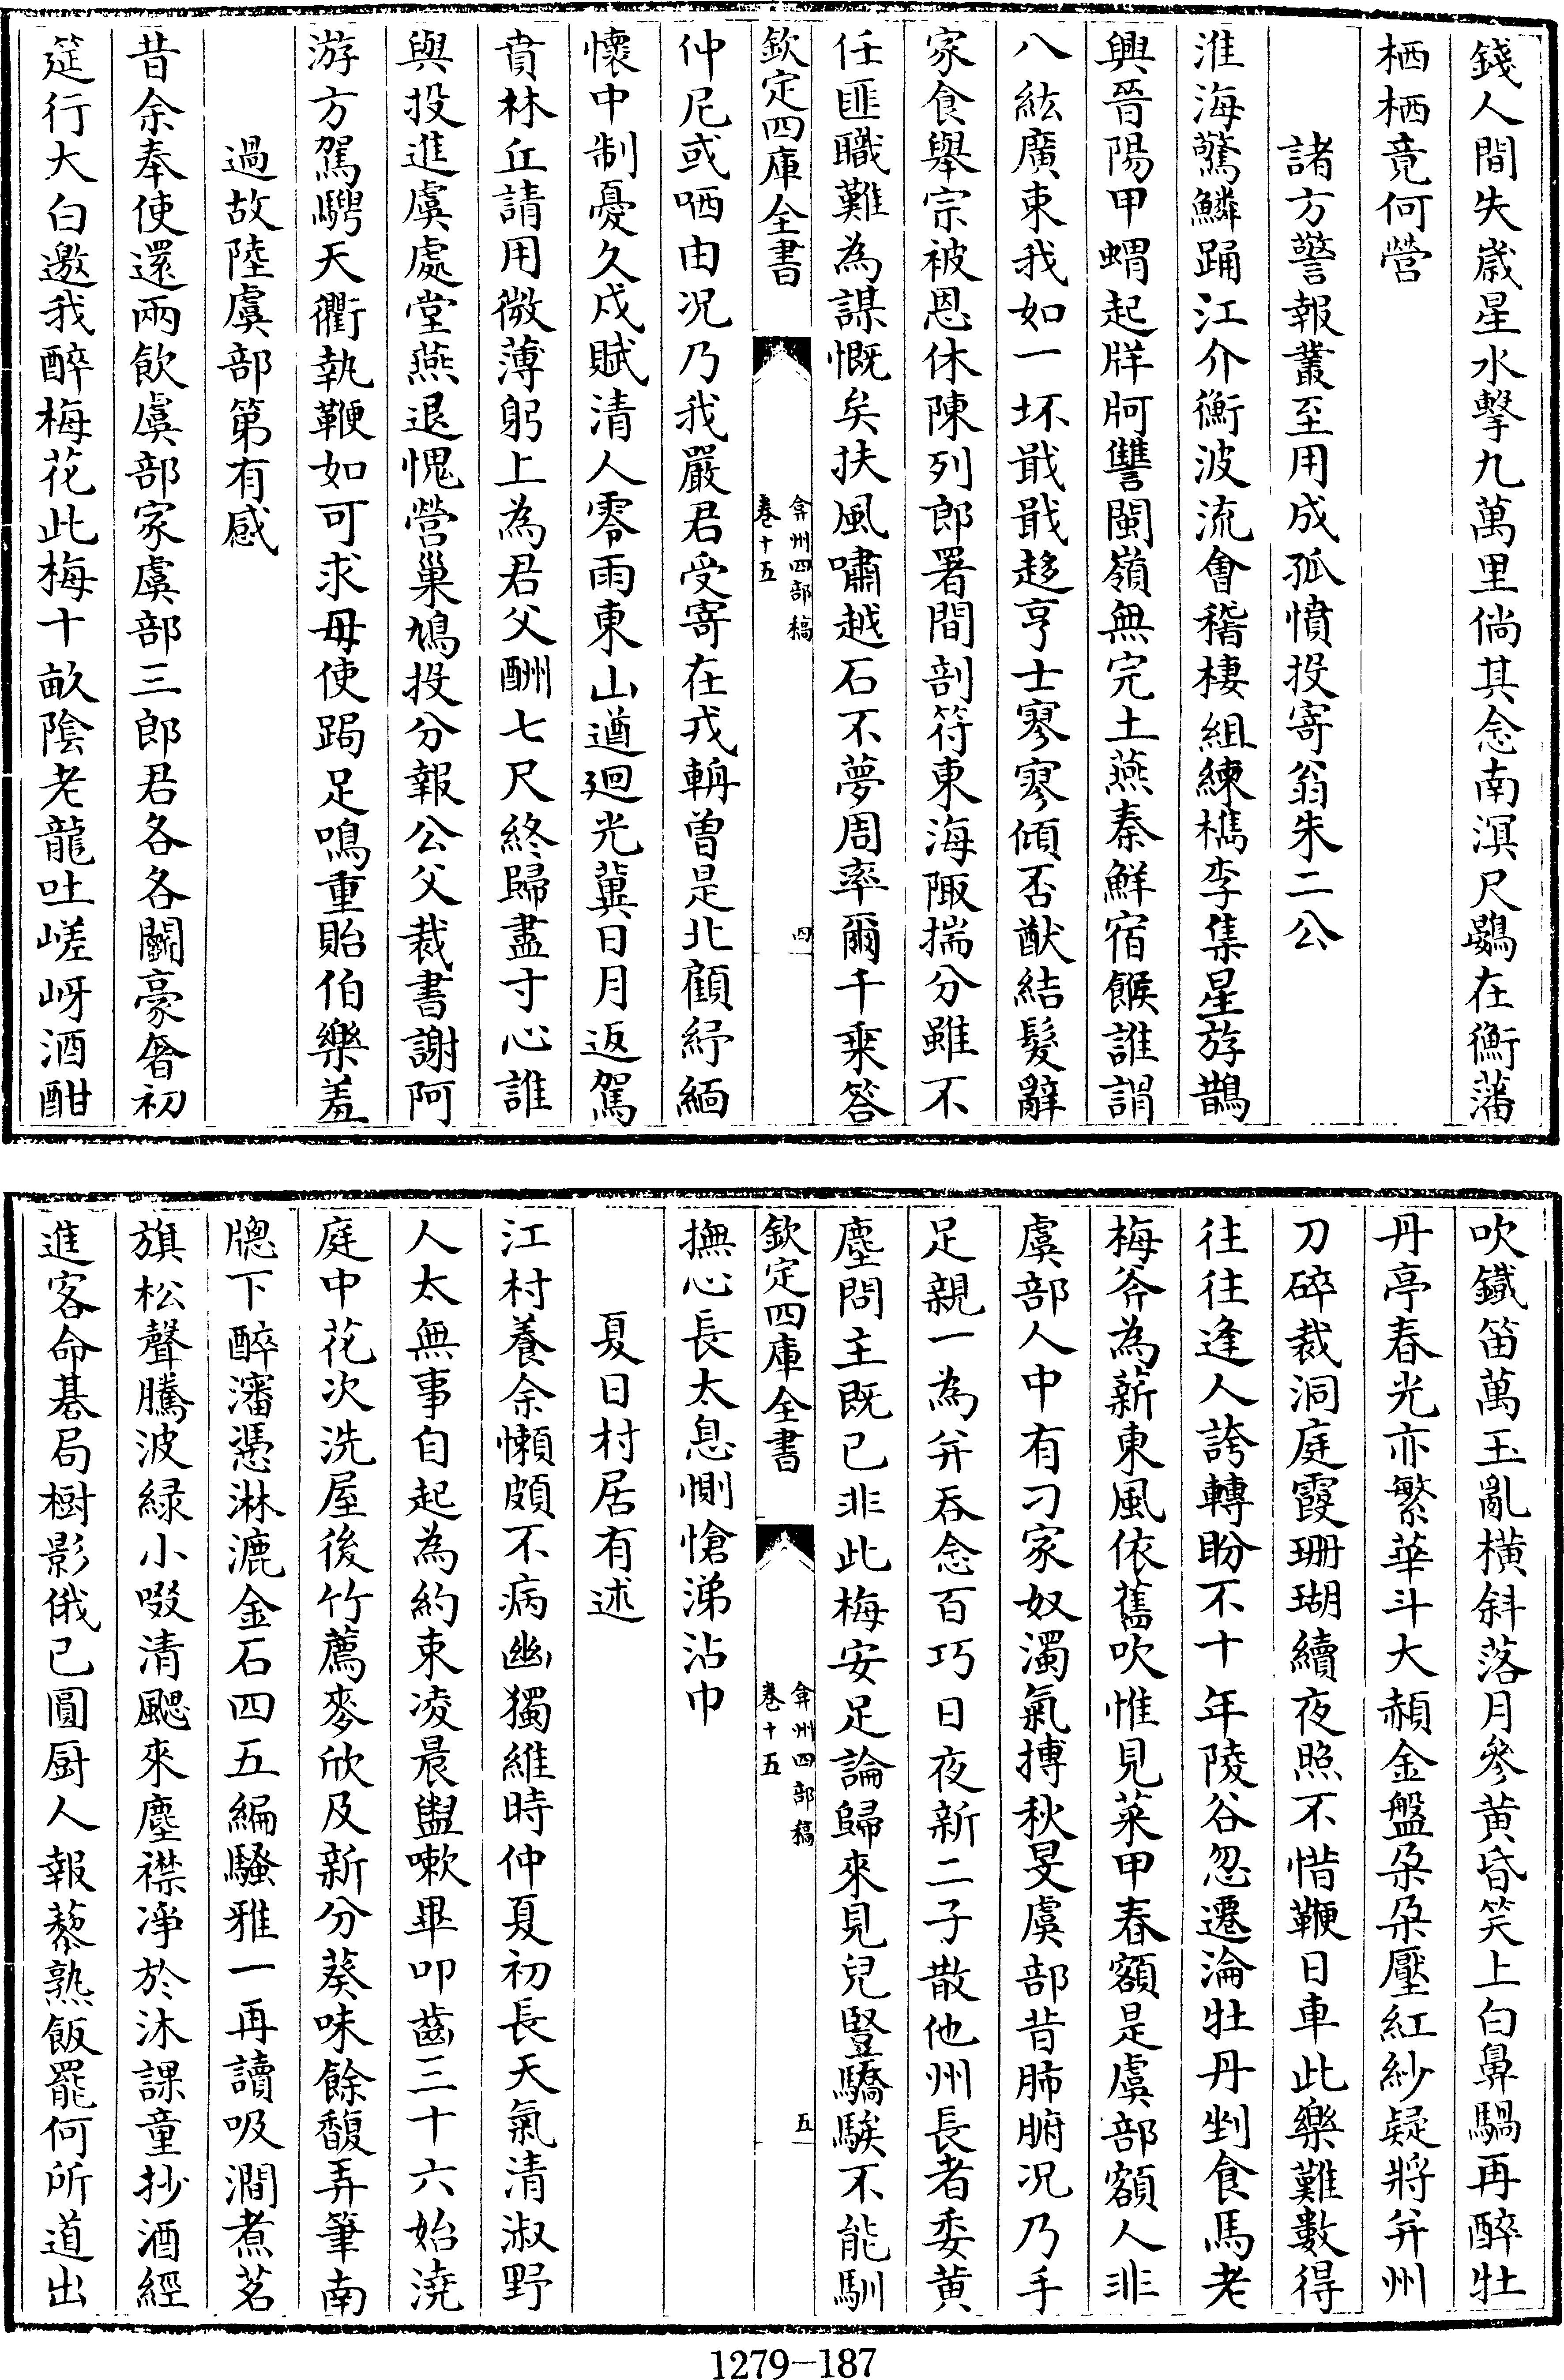 錢人間失歲星水擊九萬里倘其念南溟尺鷃在衡藩
栖栖竟何營
諸方警報叢至用成孤憤投寄翁朱二公
淮海驚鱗踊江介衡波流會稽棲組練檇李集星斿鵲
興晉陽甲蝟起牂牁讐閩嶺無完土燕秦鮮宿餱誰謂
八紘廣東我如一坏戢戢趍亨士寥寥傾否猷結髮辭
家食舉宗被恩休陳列郎署間剖符東海陬揣分雖不
任匪職難為謀慨矣扶風嘯越石不夢周率爾千乗答
欽定四庫全書
弇州四部稿
卷十五
四
仲尼或哂由况乃我嚴君受寄在戎輈曾是北顧紓緬
懷中制憂久戍賦清人零雨東山遒廻光冀日月返駕
賁林丘請用微薄躬上為君父酬七尺終歸盡寸心誰
與投進虞處堂燕退愧營巢鳩投分報公父裁書謝阿
游方駕騁天衢執鞭如可求毋使跼足鳴重貽伯樂羞
過故陸虞部第有感
昔余奉使還兩飲虞部家虞部三郎君各各鬬豪奢初
筵行大白邀我醉梅花此梅十畝陰老龍吐嵯岈酒酣
吹鐵笛萬玉亂橫斜落月參黃昏笑上白鼻騧再醉牡
丹亭春光亦繁華斗大赬金盤朶朶壓紅紗疑將并州
刀碎裁洞庭霞珊瑚續夜照不惜鞭日車此樂難數得
往往逢人誇轉盼不十年陵谷忽遷淪牡丹剉食馬老
梅斧為薪東風依舊吹惟見菜甲春額是虞部額人非
虞部人中有刁家奴濁氣摶秋旻虞部昔肺腑况乃手
足親一為并吞念百巧日夜新二子散他州長者委黃
塵問主既已非此梅安足論歸來見兒豎驕騃不能馴
欽定四庫全書
弇州四部稿
卷十五
五
撫心長太息惻愴涕沾巾
夏日村居有述
江村養余懶頗不病幽獨維時仲夏初長天氣清淑野
人太無事自起為約束凌晨盥嗽畢叩齒三十六始澆
庭中花次洗屋後竹薦麥欣及新分葵味餘馥弄筆南
牕下醉瀋憑淋漉金石四五編騷雅一再讀吸澗煮茗
旗松聲騰波緑小啜清颸來塵襟凈於沐課童抄酒經
進客命碁局樹影俄已圓厨人報藜熟飯罷何所道出
1279-187